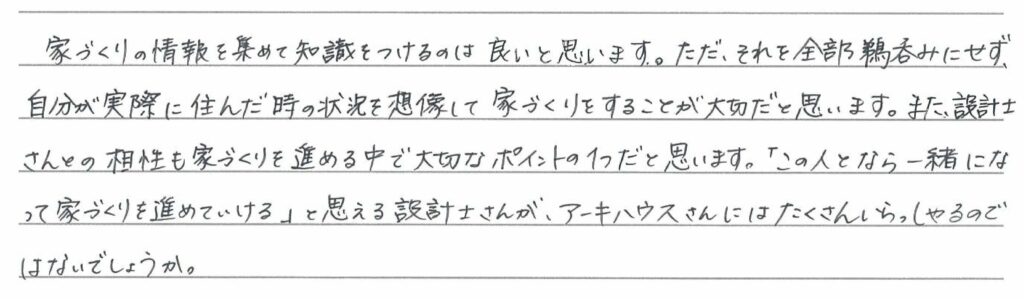 家づくりの情報を集めて知識をつけるのは良いと思います。ただ、それを全部鵜呑みにせず、
自分が実際に住んだ時の状況を想像して家づくりをすることが大切だと思います。また、設計士
さんとの相性も家づくりを進める中で大切なポイントの1つだと思います。「この人となら一緒にな
って家づくりを進めていける」と思える設計士さんが、アーキハウスさんにはたくさんいらっしゃるので
はないでしょうか。